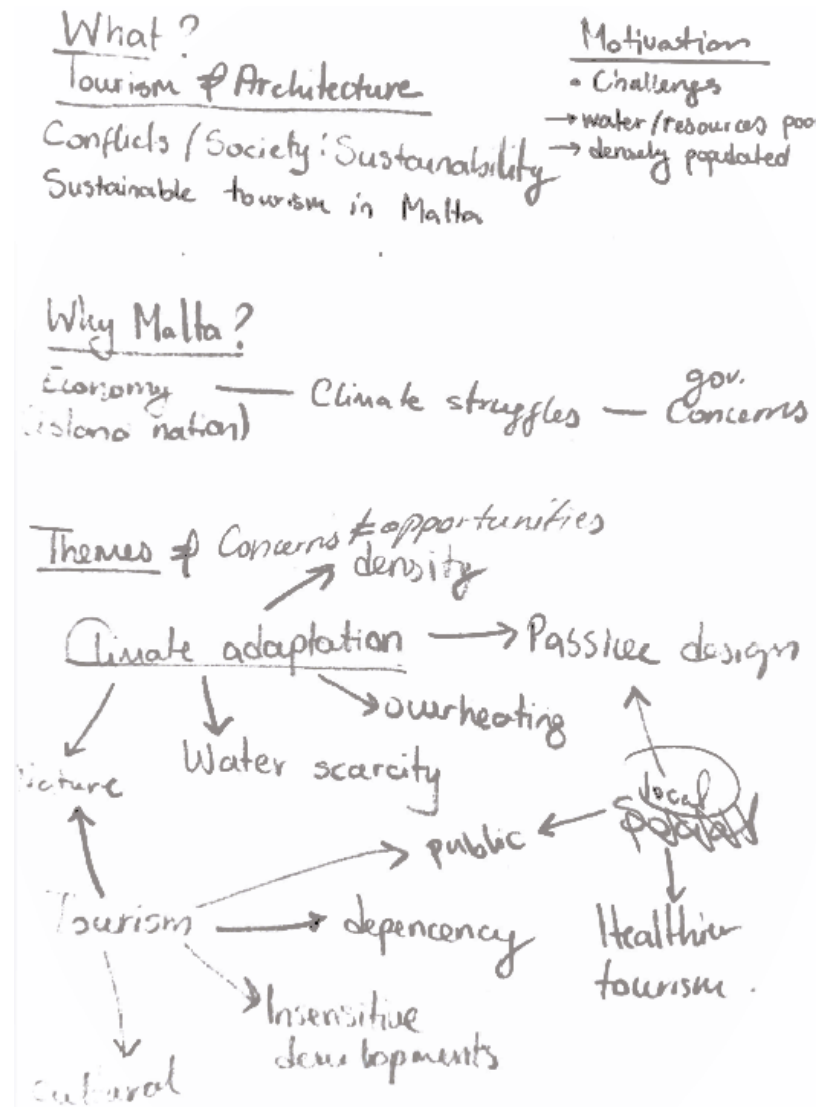 What?
Tourism & Architecture
Conflicts / Society: Sustainability
Sustainable tourism in Malta
Motivation
• Challenges
→ water/resources poor
→ densely populated
Why Malta?
Economy — Climate struggles — gov. Concerns
(island nation)
Themes & Concerns ≠ opportunities
density
Climate adaptation → Passive design
overheating
Water scarcity
Nature
local
public
Tourism
depencency
Healthier
tourism.
Insensitive
developments
Cultural